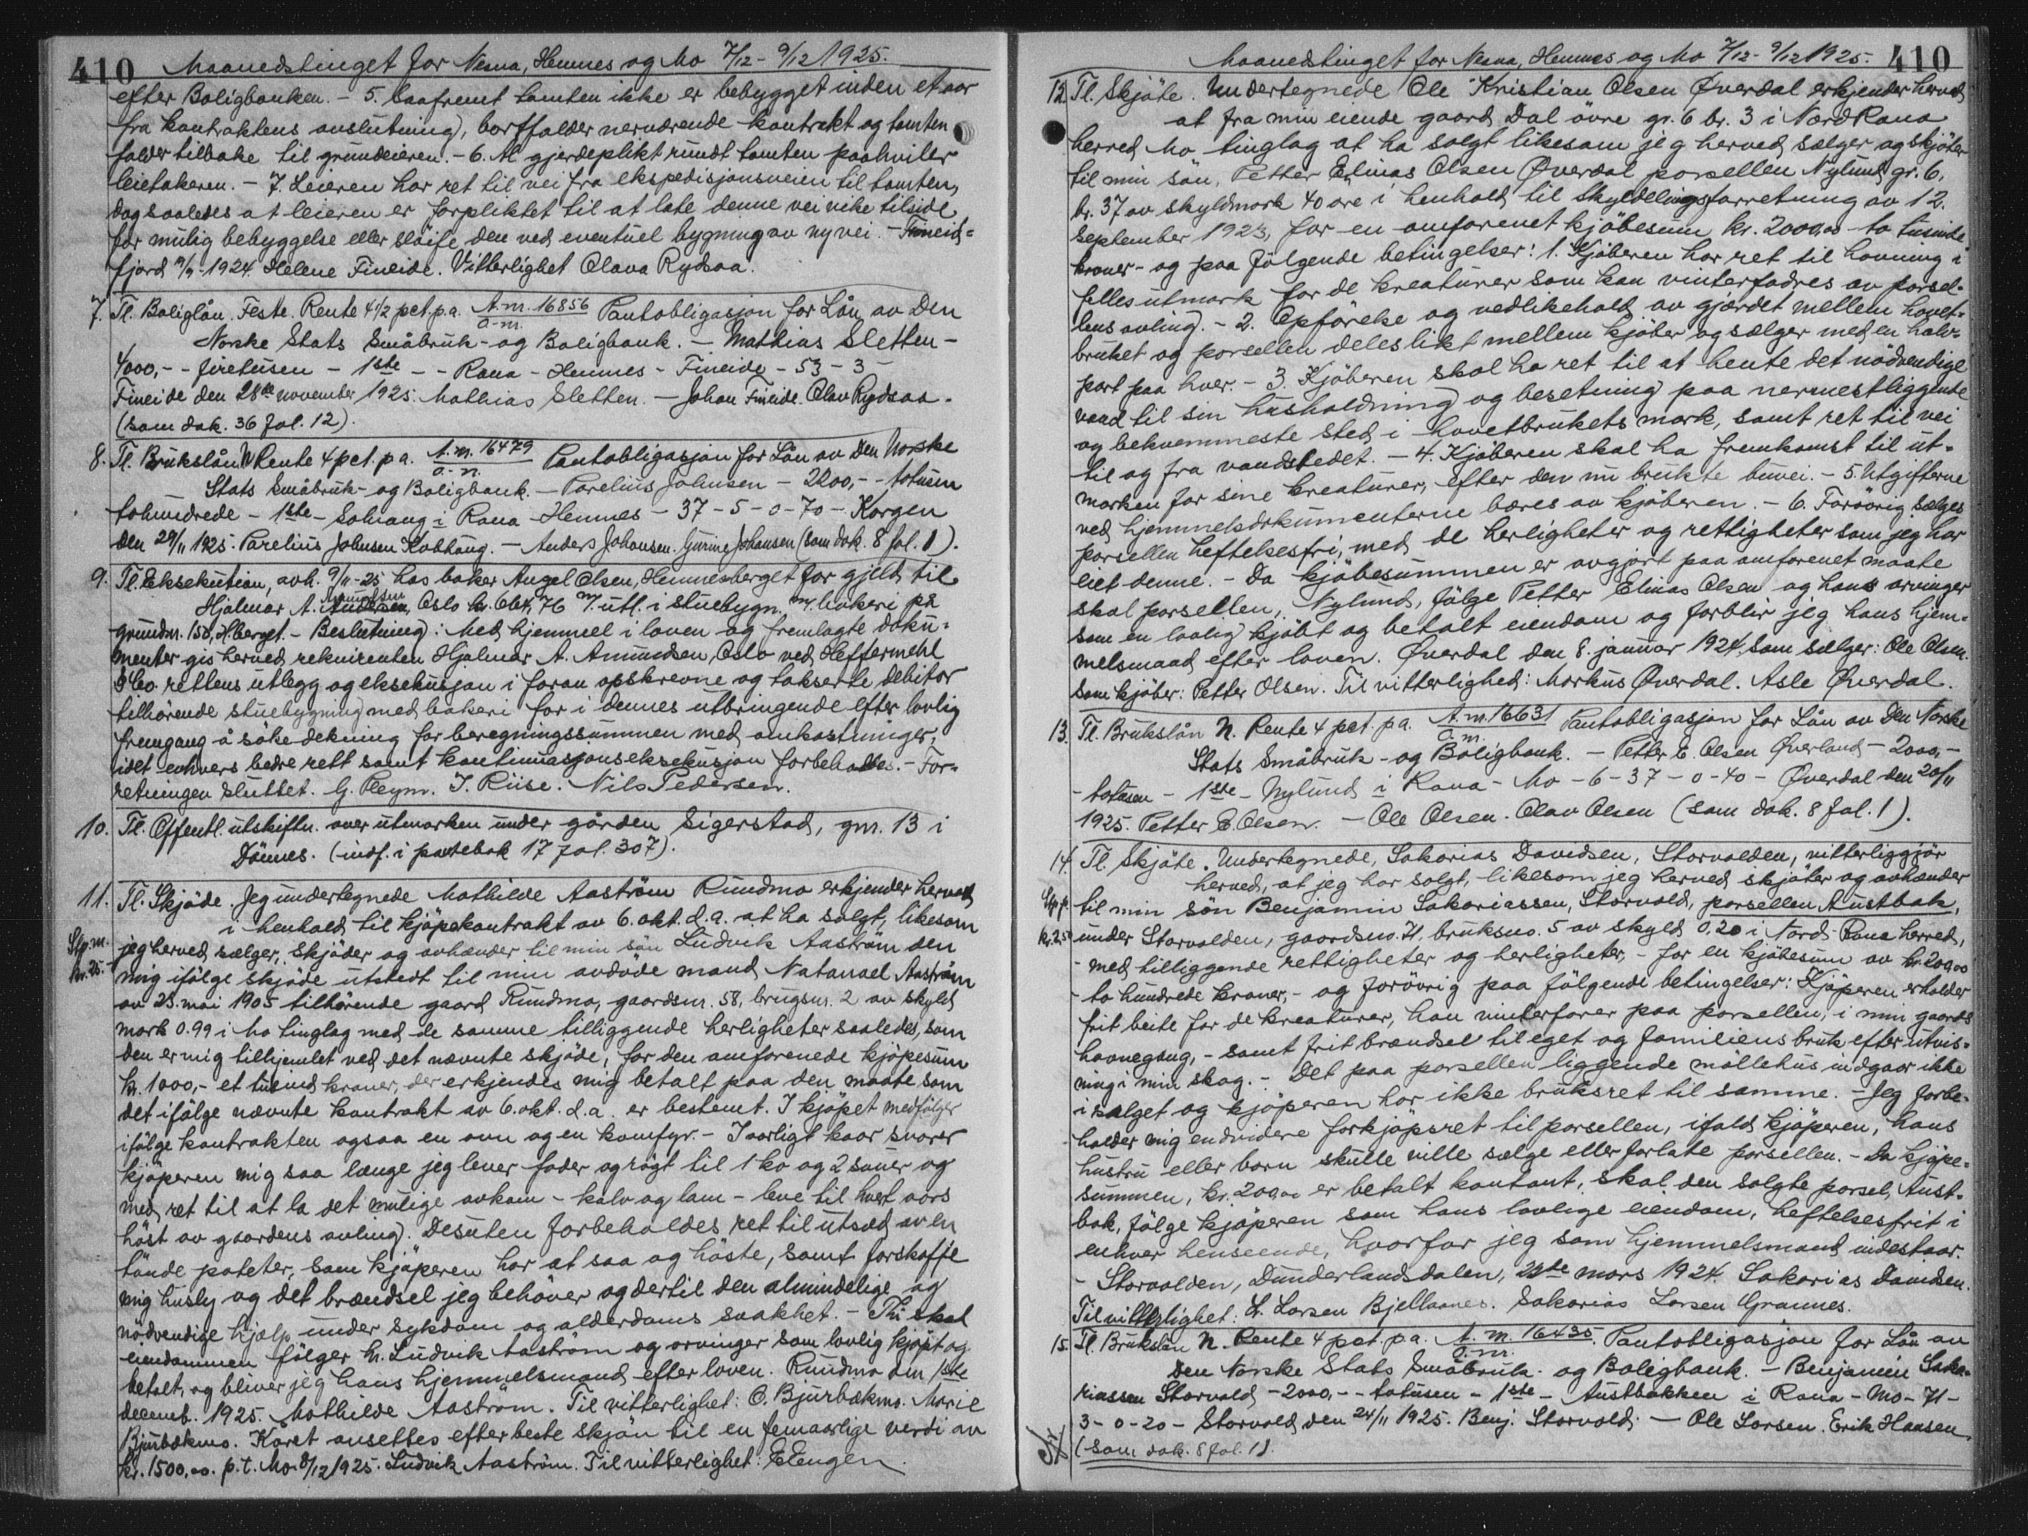 410
Maanedstinget for Nesna, Hemnes og Mo 7/12 - 9/12 1925.
efter Boligbanken. - 5. Saafremt tomten ikke er bebygget inden et aar
fra kontraktens avslutning, bortfalder nerværende kontrakt og tomten
falder tilbake til grundeieren. - 6. Al gjerdeplikt rundt tomten paahviler
leietakeren. - 7. Leieren har ret til vei fra ekspedisjonsveien til tomten,
dog saaledes at leieren er forpliktet til at late denne vei vike tilside
for mulig bebyggelse eller sløife den ved eventuel bygning av ny vei. - Fineid-
fjord 1924. Helene Fineide. Vitterlighet Olava Rydsaa.
7. Tl. Boliglån. Feste. Rente 4 1/2 pct. p.a. A.m. 16856 Pantobligasjon for Lån av Den
a.m.
Norske Stats Småbruk- og Boligbank. - Mathias Sletten -
4000,- - firetusen - 1ste - - Rana - Hemnes - Fineide - 53 - 3
Fineide den 28de november 1925. Mathias Sletten. - Johan Fineide. Olav Rydsaa.
(som dok. 36 fol. 12).
8. Tl. Brukslån N Rente 4 pct. p.a. A.m. 16479 Pantobligasjon for Lån av Den Norske
a.m.
Stats Småbruk- og Boligbank. - Parelius Johnsen - 2200,- - totusen
tohundrede - 1ste - Solvang i Rana - Hemnes - 37 - 5 - 0 - 70 - Korgen
den 29/11 1925. Parelius Johnsen Kobhaug. - Anders Johansen. Gurine Johansen (som dok. 8 fol. 1).
9. Tl. Eksekution, avh. 9/11-25 hos baker Angel Olsen, Hemnesberget for gjeld til
Hjalmar A. Amundsen, Oslo kr. 664,76 m/ utl. i stuebygn. m/ bakeri på
grundn. 150, H.berget. - Beslutning: Med hjemmel i loven og fremlagte doku-
menter gis herved rekvirenten Hjalmar A. Amundsen, Oslo ved Heffermehl
& Co rettens utlegg og eksekusjon i foran opskrevne og takserte debitor
tilhørende stuebygning med bakeri for i dennes utbringende efter lovlig
fremgang å søke dekning for beregningssummen med omkostninger,
idet enhvers bedre rett samt kontinuasjonseksekusjon forbeholdes. - For-
retningen sluttet. G. Pleym. J. Riise. Nils Pedersen.
10. Tl. Offentl. utskiftn. over utmarken under gården Sigerstad, gnr. 13 i
Dönnes. (indf. i pantebok 17 fol. 307).
11. Tl. Skjöde. Jeg undertegnede Mathilde Aaström Rundmo erkjender herved
i henhold til kjöpekontrakt av 6. okt. d.a. at ha solgt, likesom
Stp. m.
jeg herved sælger, skjöder og avhænder til min sön Ludvik Aaström den
kr. 25.-
mig ifölge skjöde utstedt til min avdöde mand Natanael Aaström
av 23. mai 1905 tilhörende gaard Rundmo, gaardsnr. 58, brugsnr. 2 av skyld
mark 0.99 i Mo tinglag med de samme tilliggende herligheter saaledes, som
den er mig tilhjemlet ved det nævnte skjöde, for den omforenede kjöpesum
kr. 1000,- et tusind kroner, der erkjendes mig betalt paa den maate, som
det ifölge nævnte kontrakt av 6. okt. d.a. er bestemt. I kjöpet medfölger
ifölge kontrakten ogsaa en ovn og en komfyr. - I aarligt kaar svarer
kjöperen mig saa længe jeg lever foder og rögt til 1 ko og 2 sauer og
med ret til at la det mulige avkom - kalv og lam - leve til hvert aars
höst av gaardens avling. Desuten forbeholdes ret til utsæd av en
tönde poteter, som kjöperen har at saa og höste, samt forskaffe
mig husly og det brændsel jeg behöver og dertil den almindelige og
nödvendige hjælp under sykdom og alderdoms svakhet. - Thi skal
eiendommen fölger hr. Ludvik Aaström og arvinger som lovlig kjöpt og
betalt, og bliver jeg hans hjemmelsmand efter loven. Rundmo den 1ste
decemb. 1925. Mathilde Aaström. Til vitterlighet: O. Bjurbækmo. Marie
Bjurbækmo. Karet ansettes efter beste skjön til en femaarlige verdi av
kr. 1500,00. p.t. Mo 8/12 1925. Ludvik Aaström. Til vitterlighet: E. Engen.
410
Maanedstinget for Nesna, Hemnes og Mo 7/12 - 9/12 1925.
12. Tl. Skjöte. Undertegnede Ole Kristian Olsen Överdal erkjender herved
at fra min eiende gaard Dal övre gr. 6 br. 3 i Nord Rana
herred Mo tinglag at ha solgt likesom jeg herved sælger og skjöter
til min sön, Petter Elinas Olsen Överdal parsellen Nylund gr. 6,
br. 37 av skyldmark 40 öre i henhold til skyldelingsforretning av 12.
september 1923, for en omforenet kjöbesum kr. 2000,00 to tusinde
kroner - og paa fölgende betingelser: 1. Kjöberen har ret til havning i
felles utmark for de kreaturer som kan vinterfodres av parsel-
lens avling. - 2. Opförelse og vedlikehold av gjærdet mellem hovet-
bruket og parsellen deles likt mellem kjöber og sælger med en halv-
part paa hver. - 3. Kjöberen skal ha ret til at hente det nödvendige
vand til sin husholdning og besetning paa nermestliggende
og bekvemmeste sted i hovetbrukets mark, samt ret til vei
til og fra vandstedet. - 4. Kjöberen skal ha fremkomst til ut-
marken for sine kreaturer, efter den nu brukte buvei. - 5. Utgifterne
ved hjemmelsdokumenterne bæres av kjöberen. - 6. Foröyrig sælges
parsellen heftelsesfri, med de herligheter og rettigheter som jeg har
eiet denne. - Da kjöbesummen er avgjort paa omforenet maate
skal parsellen, Nylund, fölge Petter Elinas Olsen og hans arvinger
som en lovlig kjöbt og betalt eiendom og forblir jeg hans hjem-
melsmand efter loven. Överdal den 8. januar 1924. Som sælger: Ole Olsen.
Som kjöber: Petter Olsen. Til vitterlighed: Markus Överdal. Asle Överdal.
13. Tl. Brukslån N. Rente 4 pct. p.a. A.m. 16631 Pantobligasjon for Lån av Den Norske
a.m.
Stats Småbruk- og Boligbank. - Petter E. Olsen Överland - 2000,-
- totusen - 1ste - Nylund i Rana - Mo - 6 - 37 - 0 - 40 - Överdal den 20/11
1925. Petter E. Olsen. - Ole Olsen. Olav Olsen (som dok. 8 fol. 1).
14. Tl. Skjöte. Undertegnede, Sakarias Davidsen, Storvolden, vitterliggjör
herved, at jeg har solgt, likesom jeg herved skjöter og avhænder
Stp. p.
til min sön Benjamin Sakariassen, Storvold, parsellen Austbak,
kr. 2.50
under Storvolden, gaardsno. 71, bruksno. 5 av skyld 0,20 i Nord-Rana herred,
- med tilliggende rettigheter og herligheter, - for en kjöbesum av kr. 200,00
- to hundrede kroner, - og foröyrig paa fölgende betingelser: Kjöperen erholder
frit beite for de kreaturer, han vinterforer paa parsellen, i min gaards
havnegang, - samt frit brændsel til eget og familiens bruk efter utvis-
ning i min skog. - Det paa parsellen liggende möllehus indgaar ikke
i salget og kjöperen har ikke bruksret til samme. - Jeg forbe-
holder mig endvidere forkjöpsret til parsellen, ifald kjöperen, hans
hustru eller barn skulle ville sælge eller forlate parsellen. - Da kjöpe-
summen, kr. 200,00 er betalt kontant, skal den solgte parsel, Aust-
bak, fölge kjöperen som hans lovlige eiendom, heftelsesfrit i
enhver henseende, hvorfor jeg som hjemmelsmand indestaar.
- Storvolden, Dunderlandsdalen, mars 1924. Sakarias Davidsen.
Til vitterlighet: L. Larsen Bjellaanes. Sakarias Larsen Grannes.
15. Tl. Brukslån N. Rente 4 pct. p.a. A.m. 16435 Pantobligasjon for Lån av
a.m.
Den Norske Stats Småbruk- og Boligbank. - Benjamin Saka-
riassen Storvold - 2000,- - totusen - 1ste - Austbakken i Rana - Mo - 71 -
3 - 0 - 20 - Storvold, den 24/11 1925. Benj. Storvold. - Ole Larsen. Erik Hansen
(som dok. 8 fol. 1).